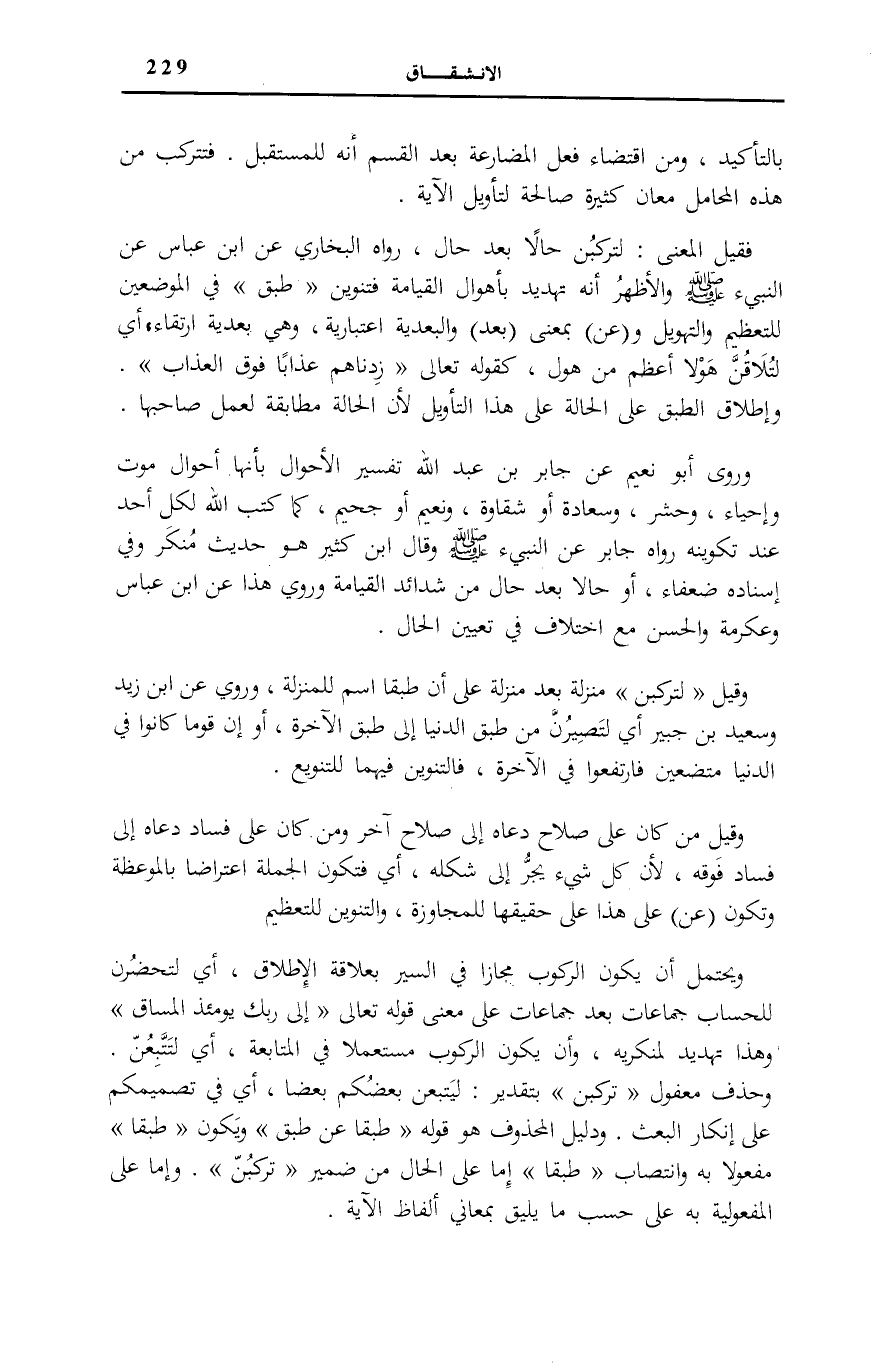 الانشقاق 229
بالتأكيد ، ومن اقتضاء فعل المضارعة بعد القسم أنه للمستقبل . فتتركب من
هذه المحامل معان كثيرة صالحة لتأويل الآية .
فقيل المعنى : لتركبُن حالًا بعد حال ، رواه البخاري عن ابن عباس عن
النبيء ﷺ والأظهرُ أنه تهديد بأهوال القيامة فتنوين « طبق » في الموضعين
للتعظيم والتهويل و(عن) بمعنى (بعد) والبعدية اعتبارية ، وهي بعدية ارتقاء، أي
لتُلَاقُنَّ هَوْلا أعظم من هول ، كقوله تعالى « زِدناهم عذابًا فوق العذاب » .
وإطلاق الطبق على الحالة على هذا التأويل لأن الحالة مطابقة لعمل صاحبها .
وروى أبو نعيم عن جابر بن عبد الله تفسير الأحوال بأنها أحوال موت
وإحياء ، وحشر ، وسعادة أو شقاوة ، ونعيم أو جحيم ، كما كتب الله لكل أحد
عند تكوينه رواه جابر عن النبيء ﷺ وقال ابن كثير هو حديث مُنكَر وفي
إسناده ضعفاء ، أو حالا بعد حال من شدائد القيامة وروي هذا عن ابن عباس
وعكرمة والحسن مع اختلاف في تعيين الحال .
وقيل « لتركبن » منزلة بعد منزلة على أن طبقا اسم للمنزلة ، وروي عن ابن زيد
وسعيد بن جبير أي لتَصِيرُنَّ من طبق الدنيا إلى طبق الآخرة ، أو إن قوما كانوا في
الدنيا متضعين فارتفعوا في الآخرة ، فالتنوين فيهما للتنويع .
وقيل من كان على صلاح دعاه إلى صلاح آخر ومن كان على فساد دعاه إلى
فساد فَوقه ، لأن كل شيء يجرُّ إلى شكله ، أي فتكون الجملة اعتراضا بالموعظة
وتكون (عن) على هذا على حقيقها للمجاوزة ، والتنوين للتعظيم
ويحتمل أن يكون الركوب مجازا في السير بعلاقة الإطلاق ، أي لتحضُرن
للحساب جماعات بعد جماعات على معنى قوله تعالى « إلى ربك يومئذ المساق »
وهذا تهديد لمنكريه ، وأن يكون الركوب مستعملا في المتابعة ، أي لتَتَّبِعُنّ .
وحذف معفول « تركبن » بتقدير : ليَتبعن بعضُكم بعضا ، أي في تصميمكم
على إنكار البعث . ودليل المحذوف هو قوله « طبقا عن طبق » ويَكون « طبقا »
مفعولا به وانتصاب « طبقا » إما على الحال من ضمير « تركبُنّ » . وإما على
المفعولية به على حسب ما يليق بمعاني ألفاظ الآية .